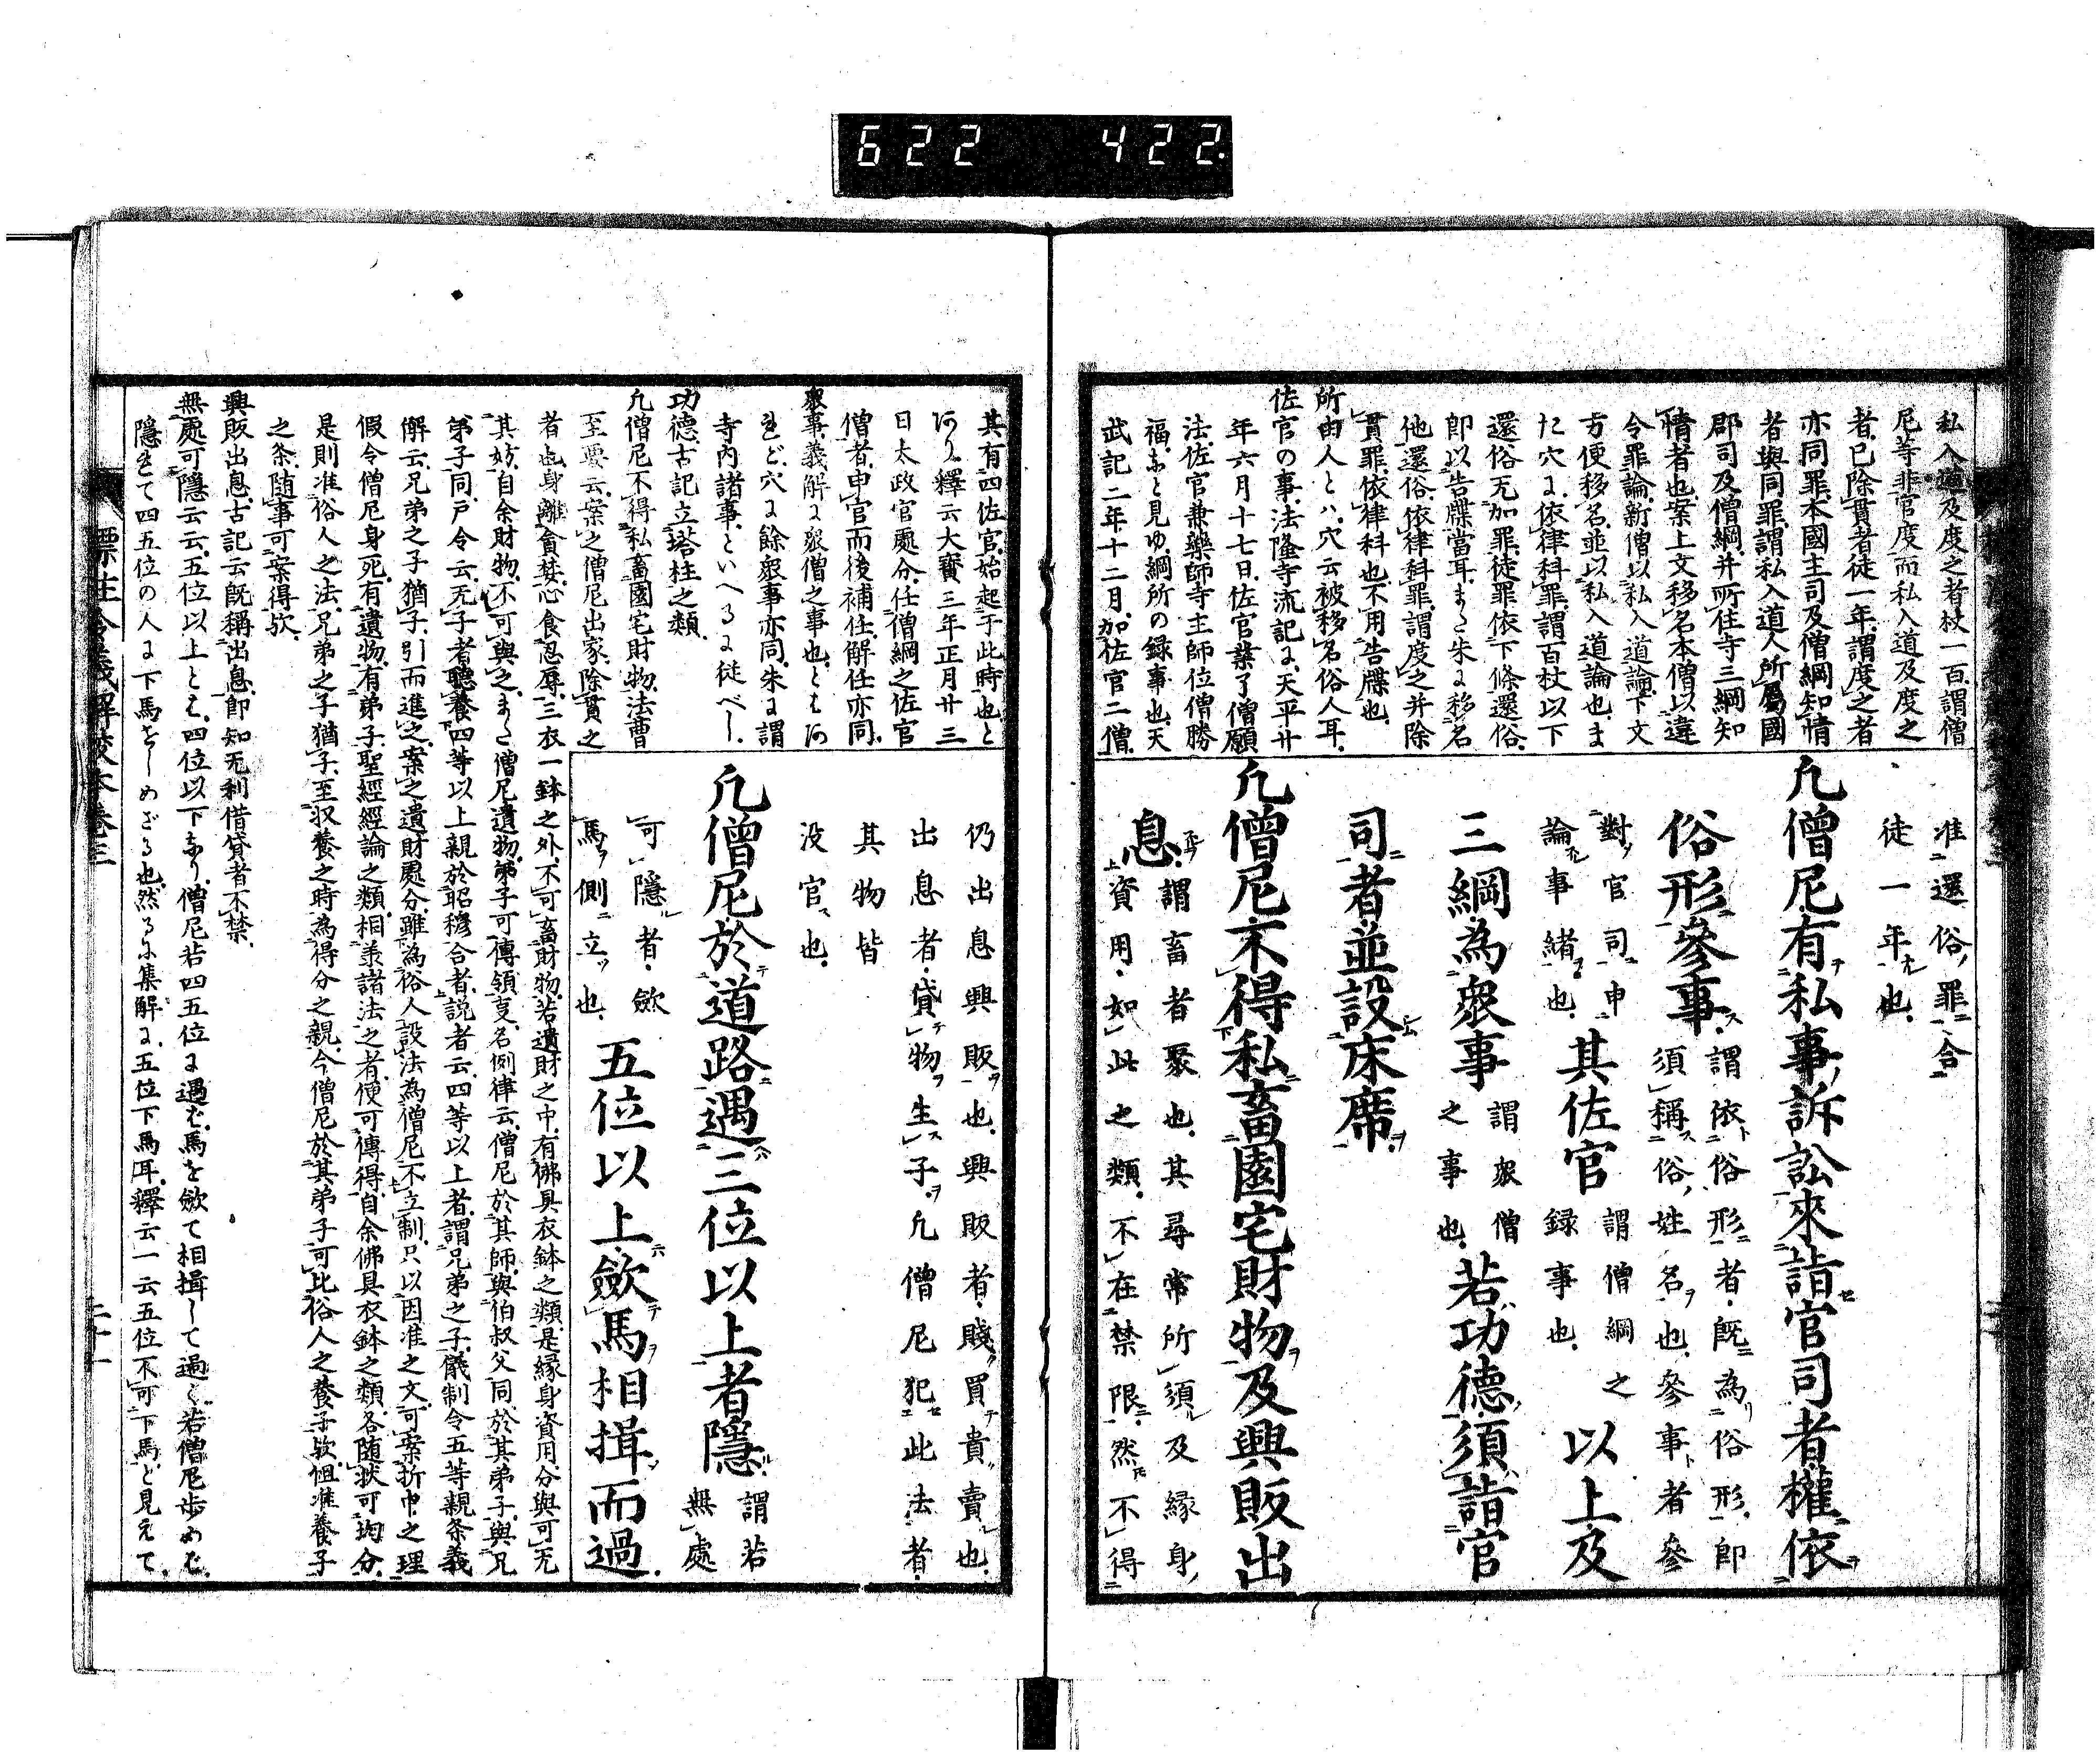 622 422
私入道及度之者杖一百謂僧
尼等非官度而私入道及度之
者已除貫者徒一年謂度之者
亦同罪本國主司及僧綱知情
者與同罪謂私入道人所屬國
郡司及僧綱并所住寺三綱知
情者也案上文移名本僧以違
令罪論新僧以私入道論下文
方便移名並以私入道論也ま
た穴に依律科罪謂百杖以下
還俗无加罪徒罪依下條還俗
即以告牒當耳また朱に移名
他還俗依律科罪謂度之并除
貫罪依律科也不用告牒也
所由人とハ穴云被移名俗人耳
佐官の事法隆寺流記に天平廿
年六月十七日佐官業了僧願
法佐官兼藥師寺主師位僧勝
福など見ゆ綱所の録事也天
武記二年十二月加佐官二僧
准還俗罪合
徒一年也
凢僧尼有私事訴訟來詣官司者權依
俗形參事謂依俗形者既為俗形即
須稱俗姓名也參事者參
對官司申
論事緒也其佐官謂僧綱之
録事也以上及
三綱為衆事謂衆僧
之事也若功德須詣官
司者並設床席
凢僧尼不得私畜園宅財物及興販出
息謂畜者聚也其尋常所須及縁身
資用如此之類不在禁限然不得
其有四佐官始起于此時也と
あり釋云大寳三年正月廿三
日太政官處分任僧綱之佐官
僧者申官而後補任解任亦同
衆事義解に衆僧之事也とあ
れど穴に餘衆事亦同朱に謂
寺内諸事といへるに従べし
功德古記立塔柱之類
凢僧尼不得私畜園宅財物法曹
至要云案之僧尼出家除貫之
者也身離貪婪心食忍辱三衣一鉢之外不可畜財物若遺財之中有佛具衣鉢之類是縁身資用分與可无
其妨自余財物不可與之また僧尼遺物弟子可傳領㕝名例律云僧尼於其師與伯叔父同於其弟子與兄
弟子同戸令云无子者聽養四等以上親於昭穆合者説者云四等以上者謂兄弟之子儀制令五等親条義
解云兄弟之子猶子引而進之案之遺財處分雖為俗人設法為僧尼不立制只以因准之文可案折中之理
假令僧尼身死有遺物有弟子聖經經論之類相羕諸法之者便可傳得自余佛具衣鉢之類各随状可均分
是則准俗人之法兄弟之子猶子至収養之時為得分之親今僧尼於其弟子可比俗人之養子欤但准養子
之条随事可案得欤
興販出息古記云既稱出息即知无利借貸者不禁
無處可隱云云五位以上とは四位以下なり僧尼若四五位に遇ば馬を斂て相揖して過ぐ若僧尼歩めば
隱れて四五位の人に下馬をしめざる也然るに集解に五位下馬耳釋云一云五位不可下馬と見えて
仍出息興販也興販者賤買貴賣也
出息者貸物生子凢僧尼犯此法者
其物皆
没官也
凢僧尼於道路遇三位以上者隱謂若
無處
可隱者斂
馬側立也五位以上斂馬相揖而過
標注令義解校本卷三
二十一